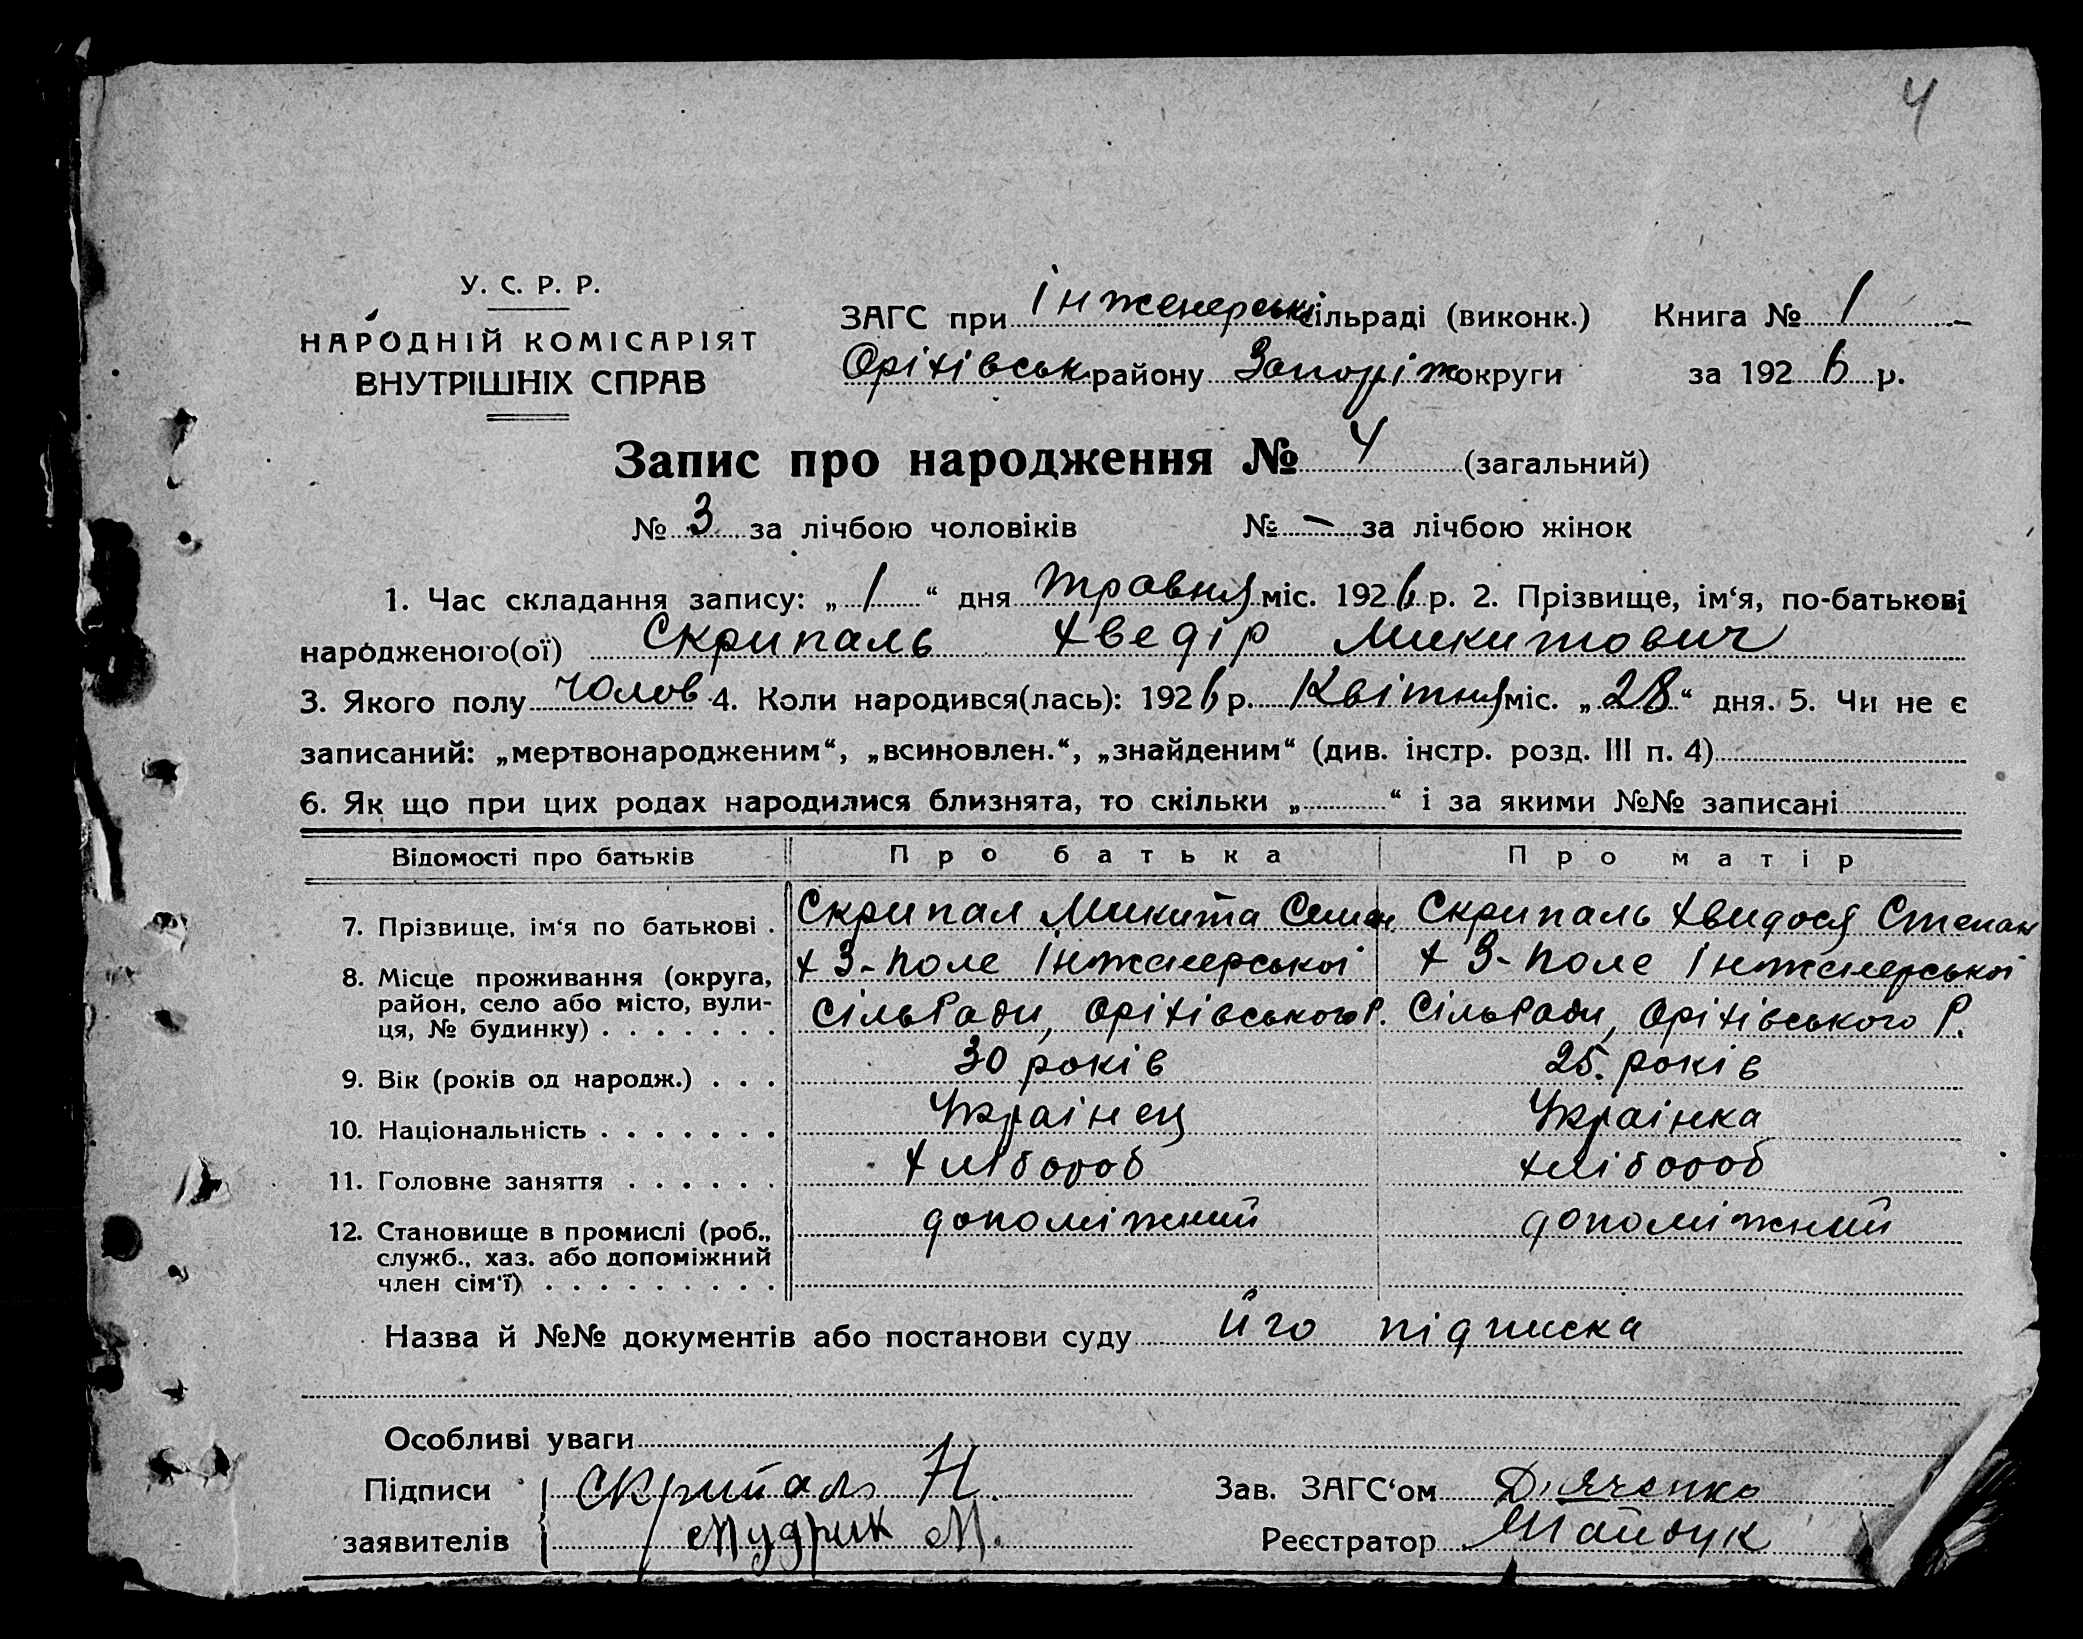 4
У. С. Р. Р.
НАРОДНІЙ КОМІСАРІЯТ
ВНУТРІШНІХ СПРАВ
ЗАГС при Інженерські сільраді (виконк.) Книга № 1
Оріхівськ. району Запоріж округи за 1926 р.
Запис про народження № 4 (загальний)
№ 3 за лічбою чоловіків № – за лічбою жінок
1. Час складання запису: „1“ дня травня міс. 1926 р. 2. Прізвище, ім‘я, по-батькові
народженого(ої) Скрипаль Хведір Микитович
3. Якого полу чолов 4. Коли народився(лась): 1926 р. Квітня міс. „28“ дня. 5. Чи не є
записаний: „мертвонародженим“, „всиновлен.“, „знайденим“ (див. інстр. розд. III п. 4)
6. Як що при цих родах народилися близнята, то скільки „ “ і за якими №№ записані
Відомості про батьків Про батька Про матір
7. Прізвище, ім‘я по батькові . Скрипал Микита Семен Скрипаль Хвидося Степан
8. Місце проживання (округа, х З-Поле Інженерської х З-Поле Інженерської
район, село або місто, вули-
ця, № будинку) . . . . . . . СільРади, Оріхівського Р. СільРади, Оріхівського Р.
9. Вік (років од народж.) . . . 30 років 25. років
10. Національність . . . . . . . Українец Українка
11. Головне заняття . . . . . . Хлібороб хлібороб
12. Становище в промислі (роб., допоміжний допоміжний
служб., хаз. або допоміжний
член сім‘ї) . . . . . . . . .
Назва й №№ документів або постанови суду йго підписка
Особливі уваги
Підписи Скрипаль Н. Зав. ЗАГС‘ом Дяченко
заявителів Мудрик М. Реєстратор